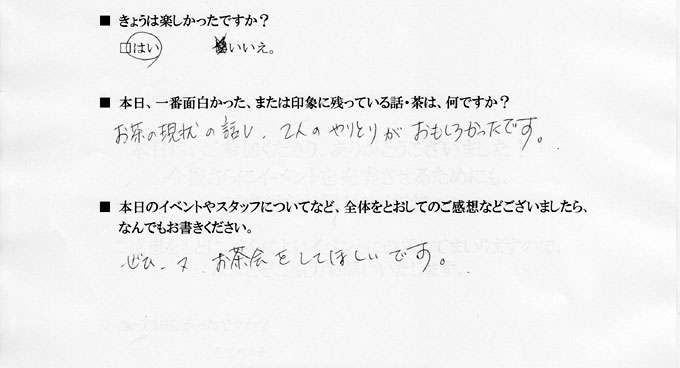 ■ きょうは楽しかったですか？
□はい いいえ。
■ 本日、一番面白かった、または印象に残っている話・茶は、何ですか？
お茶の現状の話し、2人のやりとりがおもしろかったです。
■ 本日のイベントやスタッフについてなど、全体をとおしてのご感想などございましたら、
なんでもお書きください。
ぜひ、又、お茶会をしてほしいです。